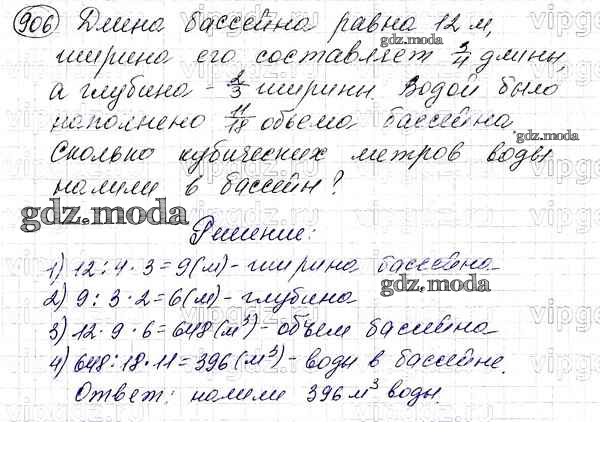 906 Длина бассейна равна 12 м,
ширина его составляет 3/4 длины,
а глубина - 2/3 ширины. Водой было
наполнено 11/18 объема бассейна.
Сколько кубических метров воды
налили в бассейн?
gdz.moda
gdz.moda
gdz.moda
Решение:
1) 12 : 4 · 3 = 9 (м) - ширина бассейна
gdz.moda
2) 9 : 3 · 2 = 6 (м) - глубина
3) 12 · 9 · 6 = 648 (м³) - объем бассейна
4) 648 : 18 · 11 = 396 (м³) - воды в бассейне.
Ответ: налили 396 м³ воды.